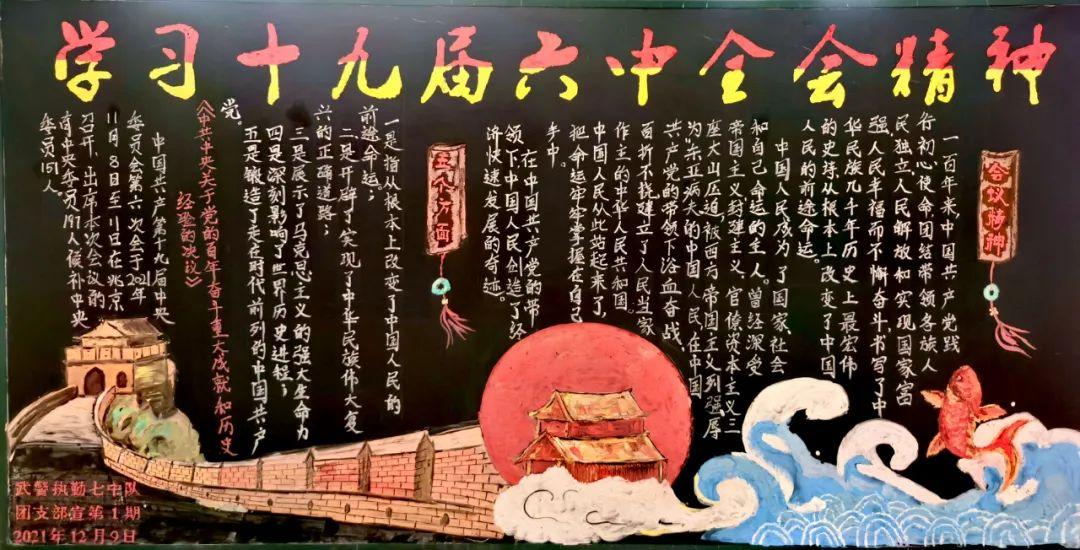 学习十九届六中全会精神
会议精神
一百年来,中国共产党践
行初心使命团结带领各族人
民独立、人民解放和实现国家富
强、人民幸福而不懈奋斗,书写了中
华民族几千年历史上最宏伟
的史诗从根本上改变了中国
人民的前途命运。
中国人民成为了国家、社会
和自己命运的主人。曾经深受
帝国主义封建主义、官僚资本主义三
座大山压迫,被西方帝国主义列强辱
为东亚病夫的中国人民,在中国
共产党的带领下浴血奋战、
百折不挠建立了人民当家
作主的中华人民共和国。
中国人民从此站起来了,
把命运牢牢掌握在自己
手中。
在中国共产党的带
领下中国人民创造了经
济快速发展的奇迹。
五个方面
一是指从根本上改变了中国人民的
前途命运;
二是开辟了实现了中华民族伟大复
兴的正确道路;
三是展示了马克思主义的强大生命力
四是深刻影响了世界历史进程;
五是锻造了走在时代前列的中国共产
党。
《中共中央关于党的百年奋斗重大成就和历史
经验的决议》
中国共产第十九届中央
委员会第六次会于2021年
11月8日至11日在北京
召开,出席本次会议的
有中央委员197人候补中央
委员151人。
武警执勤七中队
团支部宣第1期
2021年12月9日